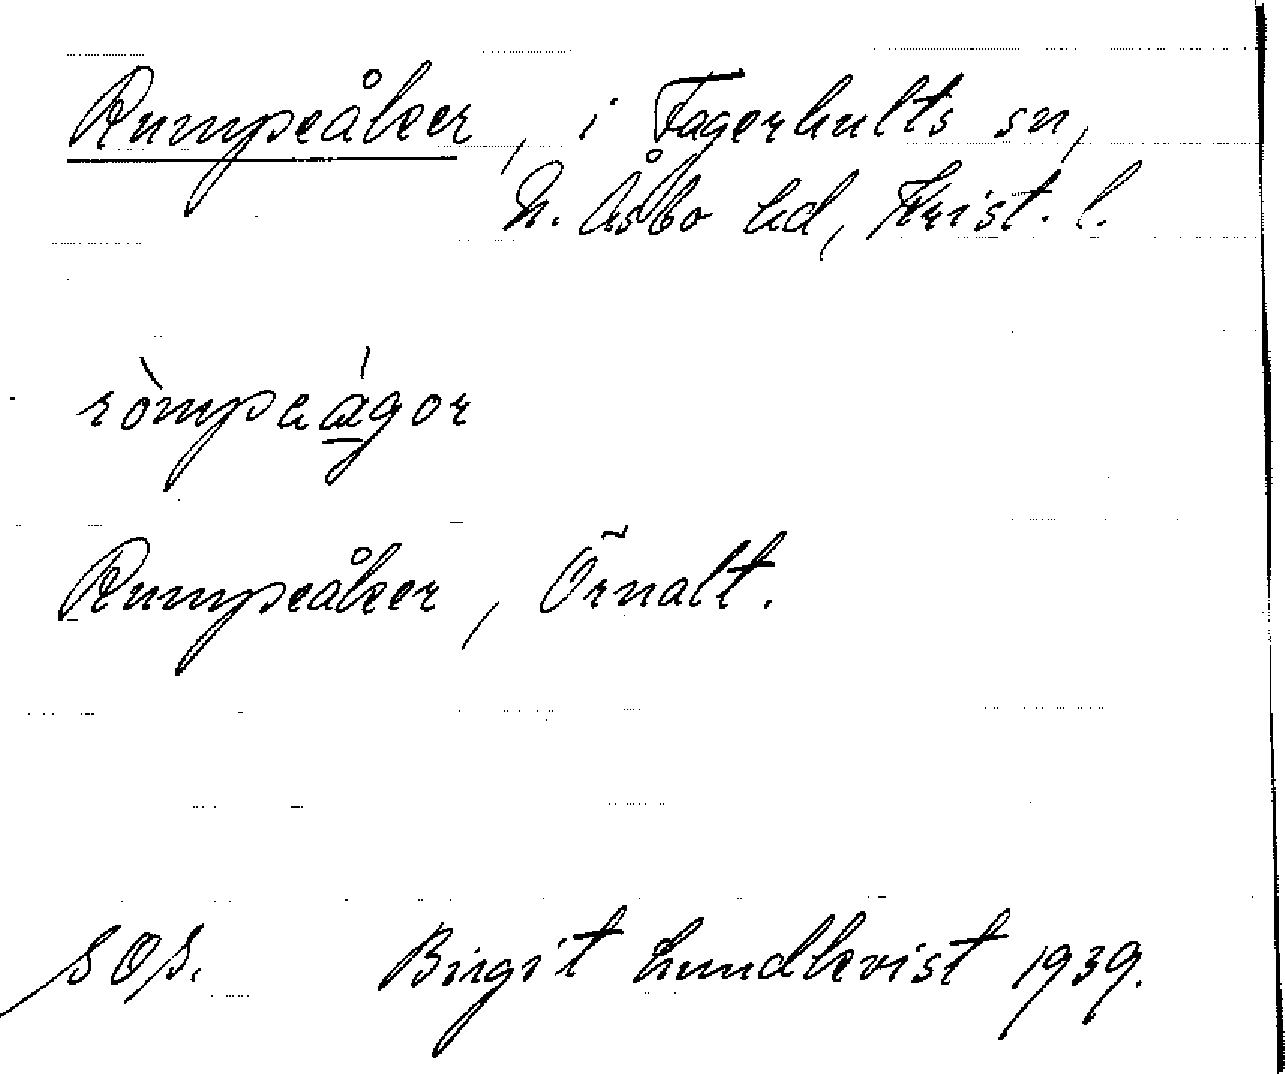 Rumpeåker, i Fagerhults sn,
N. Åsbo hd, Krist. l.
ròmpaágor
Rumpeåker, Örnalt.
SOS. Birgit Lundkvist 1939.